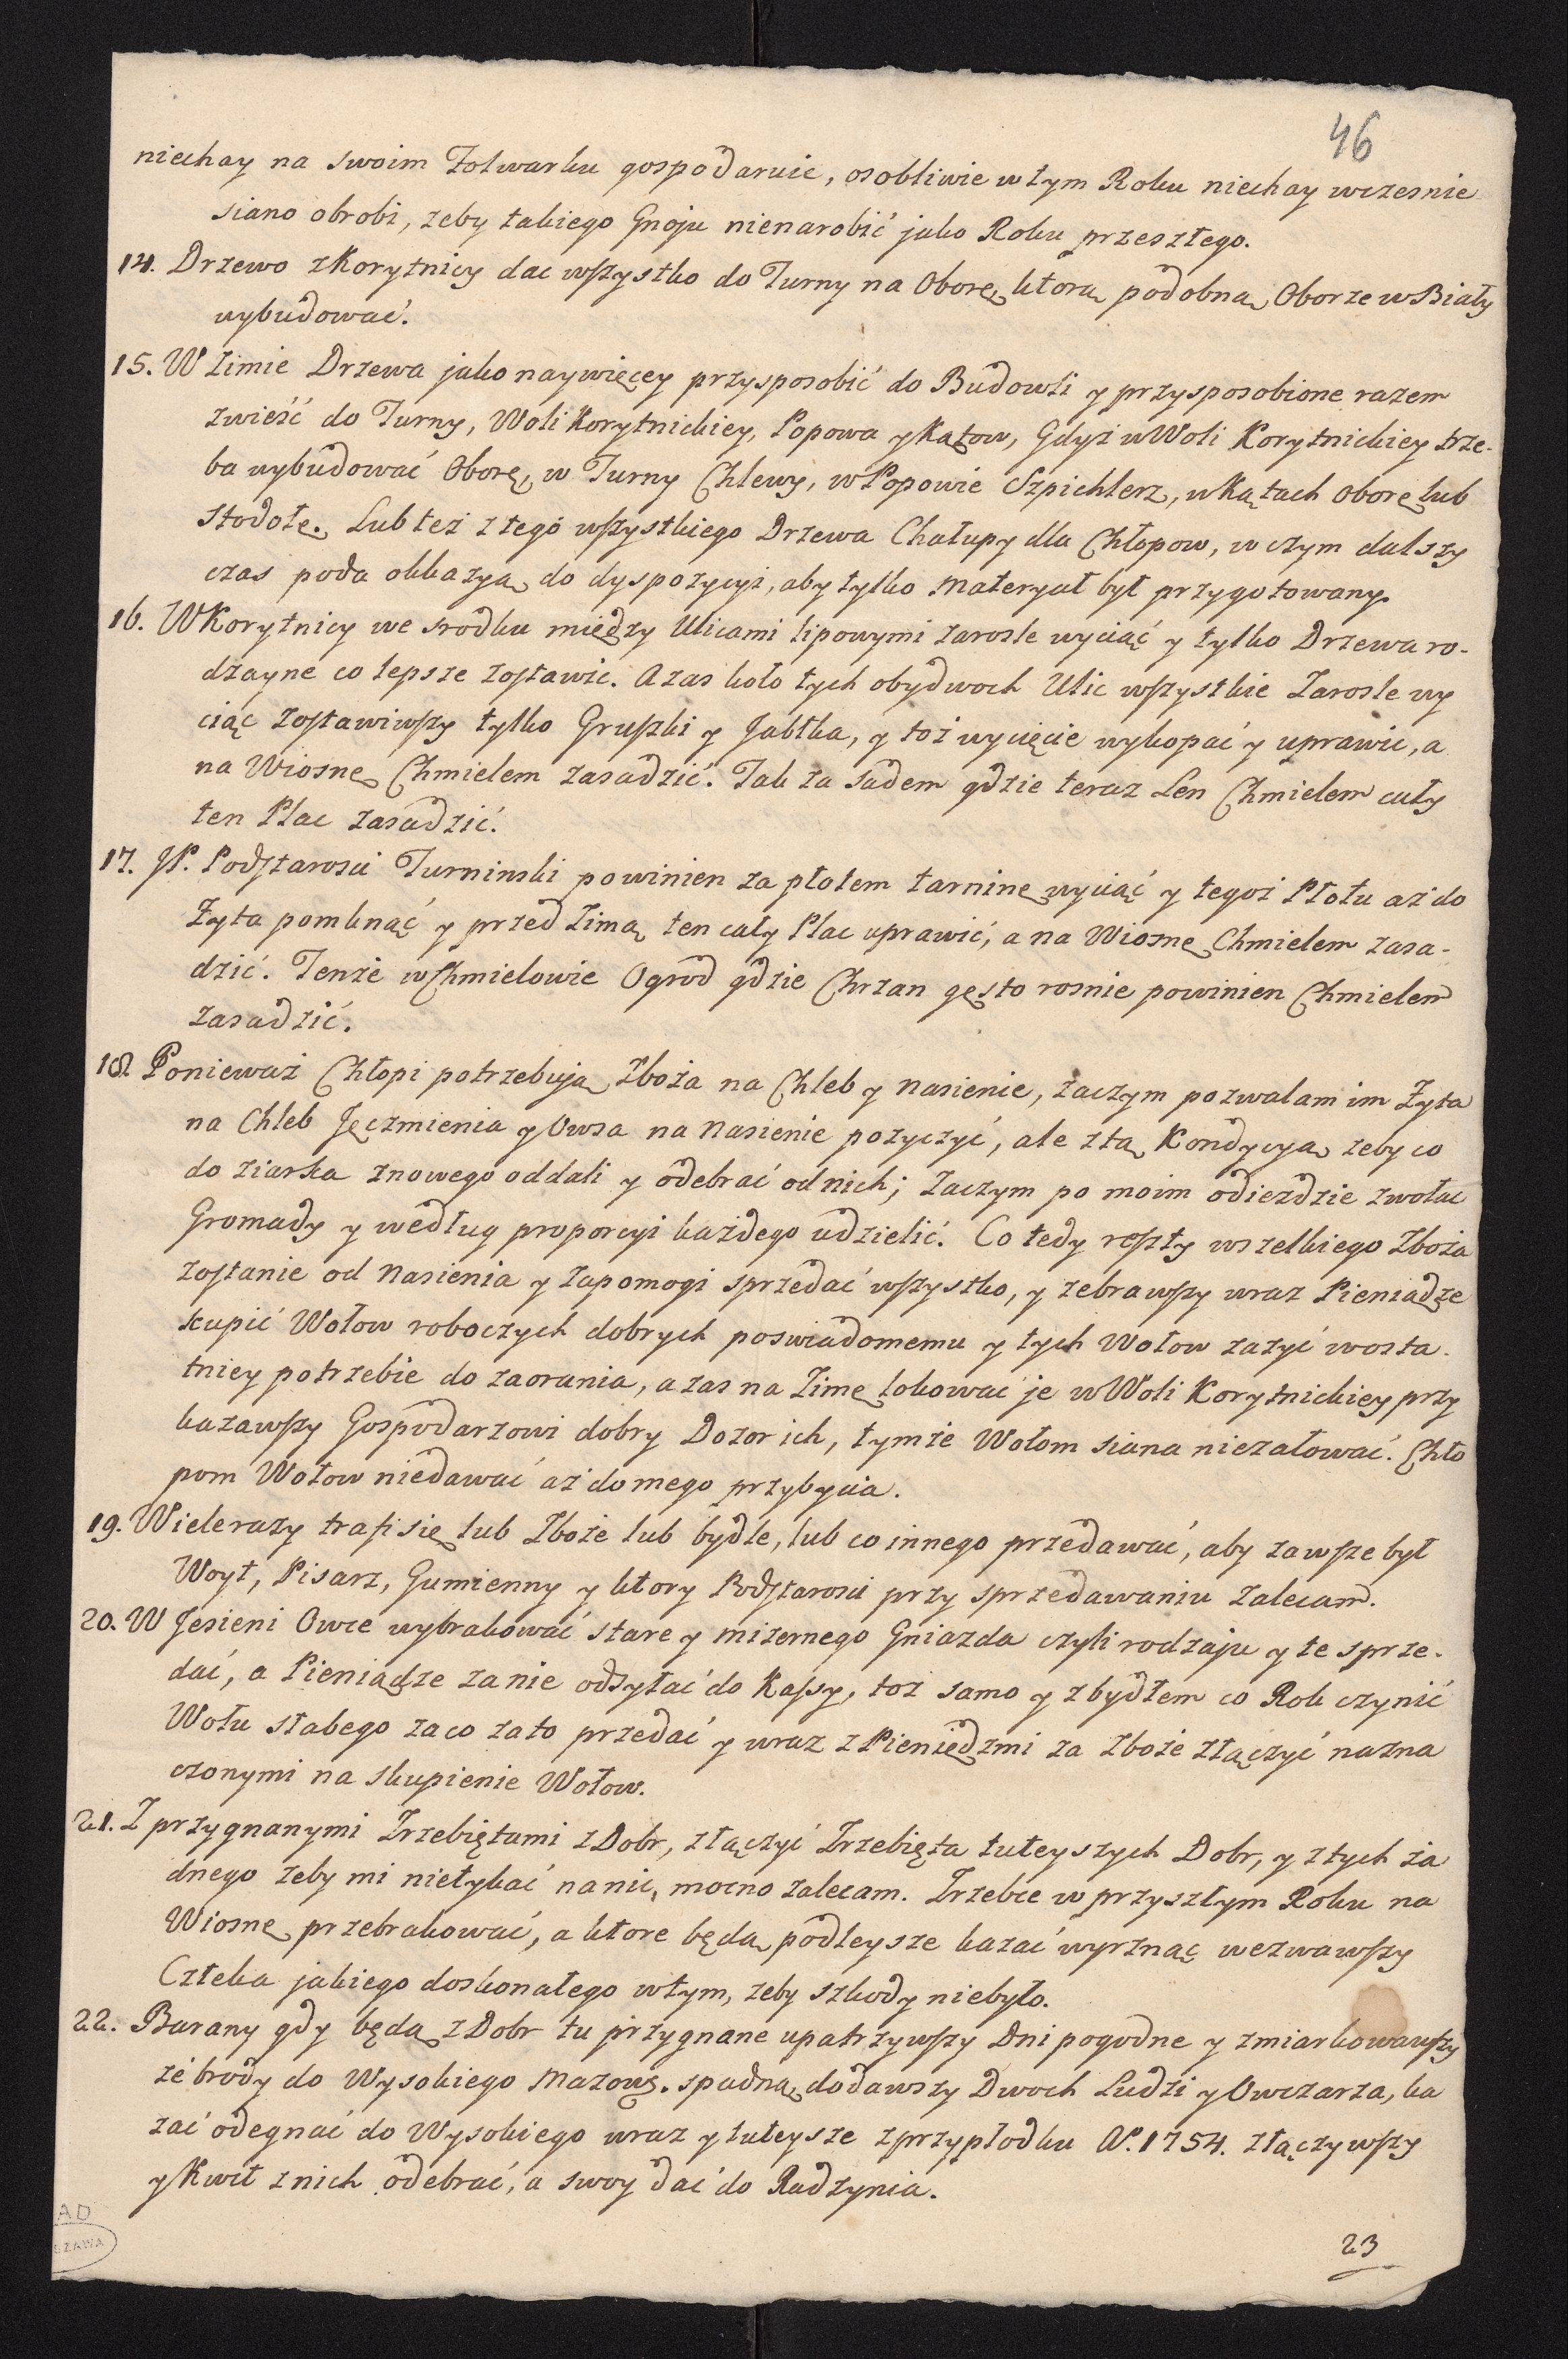 46
niechay na swoim Folwarku gospodaruie, osobliwie w tym Roku niechay wczesnie
siano obrobi, zeby takiego Gnoju nienarobić jako Roku przeszłego.
14. Drzewo z Korytnicy dac wszystko do Turny na Oborę, ktorą podobną Oborze w Biały
wybudować.
15. W Zimie Drzewa jako naywięcey przysposobić do Budowli y przysposobione razem
zwieść do Turny, Woli Korytnickiey, Popowa y Kątow, Gdyż w Woli Korytnickiey trze-
ba wybudować Oborę, w Turny Chlewy, w Popowie Szpichlerz, w Kątach Oborę lub
Stodołę. Lub też z tego wszystkiego Drzewa Chałupy dla Chłopow, w czym dalszy
czas poda okkazyą do dyspozycyi, aby tylko Materyał był przygotowany.
16. W Korytnicy we srodku między Ulicami lipowymi zarosle wyciąć y tylko Drzewa ro-
dzayne co lepsze zostawic. A zas koło tych obydwoch Ulic wszystkie Zarosle wy
ciąc zostawiwszy tylko Gruszki y Jabłka, y toż wycięcie wykopać y uprawic, a
na Wiosnę Chmielem zasadzić. Tak za sadem gdzie teraz Len Chmielem cały
ten Plac zasadzić.
17. JP. Podstarosci Turninski powinien za płotem tarninę wyciąć y tegoż Płotu aż do
Żyta pomknąć y przed Zimą ten cały Plac uprawić, a na Wiosnę Chmielem zasa-
dzić. Tenże w Chmielowie Ogrod gdzie Chrzan gęsto rosnie powinien Chmielem
zasadzić.
18 Ponieważ Chłopi potrzebują Zboża na Chleb y nasienie, zaczym pozwalam im Żyta
na Chleb Jęczmienia y Owsa na Nasienie pozyczyć, ale z tą Kondycyą zeby co
do ziarka znowego oddali y odebrać od nich; Zaczym po moim odiezdzie zwołac
Gromady y według proporcyi każdego udzielić. Co tedy reszty wszelkiego Zboża
zostanie od Nasienia y zapomogi sprzedać wszystko, y zebrawszy wraz Pieniądze
kupić Wołow roboczych dobrych poswiadomemu y tych Wołow zazyć w osta-
tniey potrzebie do zaorania, a zas na Zimę lokować je w Woli Korytnickiey przy
kazawszy Gospodarzowi dobry Dozor ich, tymże Wołom siana niezałować. Chło
pom Wołow niedawać aż do mego przybycia.
19. Wielerazy trafi się lub Zboże lub bydle, lub co innego przedawać, aby zawsze był
Woyt, Pisarz, Gumienny y ktory Podstarosci przy sprzedawaniu zalecam.
20. W Jesieni Owce wybrakować stare y mizernego Gniazda czyli rodzaju y te sprze-
dać, a Pieniądze za nie odsyłać do Kassy, toż samo y z bydłem co Rok czynić
Wołu słabego za co zato przedać y wraz z Pieniędzmi za Zboże złączyć nazna
czonymi na skupienie Wołow.
21. Z przygnanymi Zrzebiętami z Dobr, złączyć Zrzebięta tuteyszych Dobr, y z tych ża
dnego zeby mi nietykać na nic, mocno zalecam. Zrzebce w przyszłym Roku na
Wiosnę przebrakować, a ktore będą podleysze kazać wyrznąc wezwawszy
Człeka jakiego doskonałego w tym, żeby szkody niebyło.
22. Barany gdy będą z Dobr tu przygnane upatrzywszy Dni pogodne y zmiarkowawszy
że brody do Wysokiego Mazow. spadną, dodawszy Dwoch Ludzi y Owczarza, ka
zać odegnać do Wysokiego wraz y tuteysze z przypłodku A. 1754. złączywszy
y Kwit z nich odebrać, a swoy dać do Radzynia.
AD
SZAWA
23